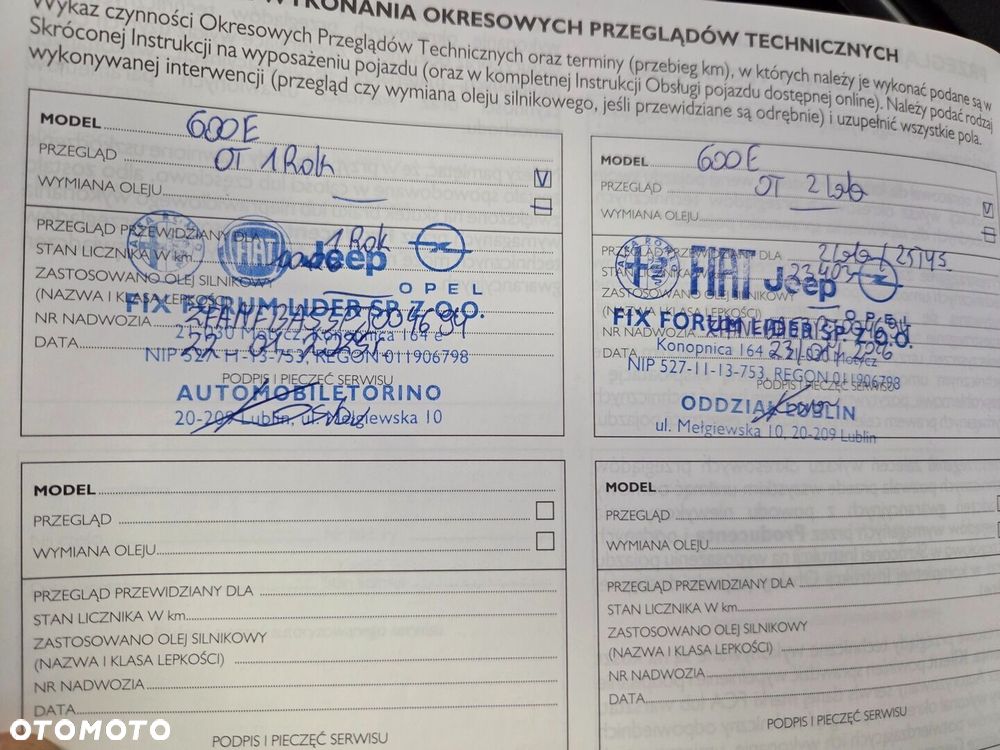 WYKONANIA OKRESOWYCH PRZEGLĄDÓW TECHNICZNYCH
Wykaz czynności Okresowych Przeglądów Technicznych oraz terminy (przebieg km), w których należy je wykonać podane są w
Skróconej Instrukcji na wyposażeniu pojazdu (oraz w kompletnej Instrukcji Obsługi pojazdu dostępnej online). Należy podać rodzaj
wykonywanej interwencji (przegląd czy wymiana oleju silnikowego, jeśli przewidziane są odrębnie) i uzupełnić wszystkie pola.
MODEL 600E
PRZEGLĄD OT 1 Rok V
WYMIANA OLEJU —
PRZEGLĄD PRZEWIDZIANY DLA 1 Rok
STAN LICZNIKA W km
ZASTOSOWANO OLEJ SILNIKOWY
(NAZWA I KLASA LEPKOŚCI)
NR NADWOZIA
DATA
FIAT Jeep OPEL
FIX FORUM LIDER SP. Z.O.O.
REGON 011906798
PODPIS I PIECZĘĆ SERWISU
AUTOMOBILETORINO
20-209 Lublin, ul. Mełgiewska 10
MODEL 600E
PRZEGLĄD OT 2 lata V
WYMIANA OLEJU —
PRZEGLĄD PRZEWIDZIANY DLA 2 lata /
STAN LICZNIKA W km
ZASTOSOWANO OLEJ SILNIKOWY
NR NADWOZIA
DATA
FIAT Jeep OPEL
FIX FORUM LIDER SP. Z O.O.
Konopnica 164
NIP 527-11-13-753, REGON 011906798
PODPIS I PIECZĘĆ SERWISU
ODDZIAŁ LUBLIN
ul. Mełgiewska 10, 20-209 Lublin
MODEL
PRZEGLĄD
WYMIANA OLEJU
PRZEGLĄD PRZEWIDZIANY DLA
STAN LICZNIKA W km
ZASTOSOWANO OLEJ SILNIKOWY
(NAZWA I KLASA LEPKOŚCI)
NR NADWOZIA
DATA
PODPIS I PIECZĘĆ SERWISU
MODEL
PRZEGLĄD
WYMIANA OLEJU
PRZEGLĄD PRZEWIDZIANY DLA
STAN LICZNIKA W km
ZASTOSOWANO OLEJ SILNIKOWY
(NAZWA I KLASA LEPKOŚCI)
NR NADWOZIA
DATA
PODPIS I PIECZĘĆ SERWISU
OTOMOTO